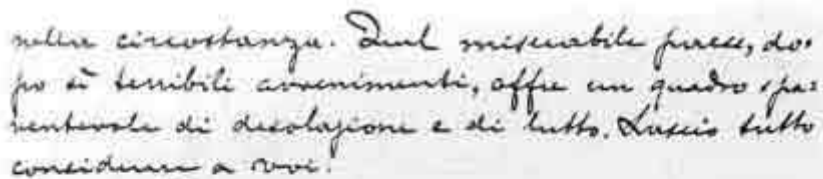 nella circostanza. Quel miserabile paese, do-
po sì terribili avvenimenti, offre un quadro spa-
ventevole di desolazione e di lutto. Lascio tutto
considerare a voi.